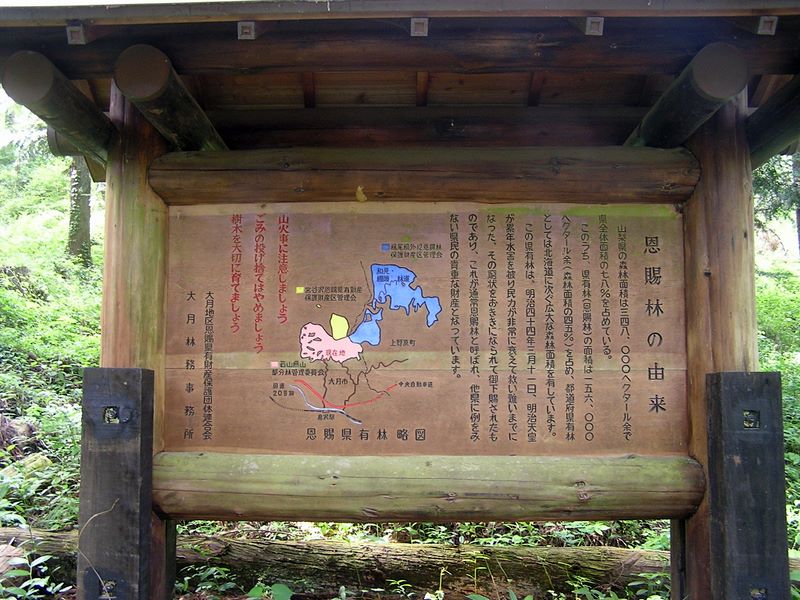 恩賜林の由来
山梨県の森林面積は三四八、〇〇〇ヘクタール余で
県全体面積の七八%を占めている。
このうち、県有林(恩賜林)の面積は一五六、〇〇〇
ヘクタール余(森林面積の四五%)を占め、都道府県有林
としては北海道に次ぐ広大な森林面積を有しています。
この県有林は、明治四十四年三月十一日、明治天皇
が累年水害を被り民力が非常に衰えて救い難いまでに
なった、その窮状をおききになられて御下賜されたも
のであり、これが通常恩賜林と呼ばれ、他県に例をみ
ない県民の貴重な財産となっています。
保護財産区管理会
保護財産区管理会
上野原町
現在地
若山県山
部分林管理委員会
大月市
国道
20号線
中央自動車道
恩賜県有林略図
山火事に注意しましょう
ごみの投げ捨てはやめましょう
樹木を大切に育てましょう
大月地区恩賜県有財産保護団体連合会
大月林務事務所